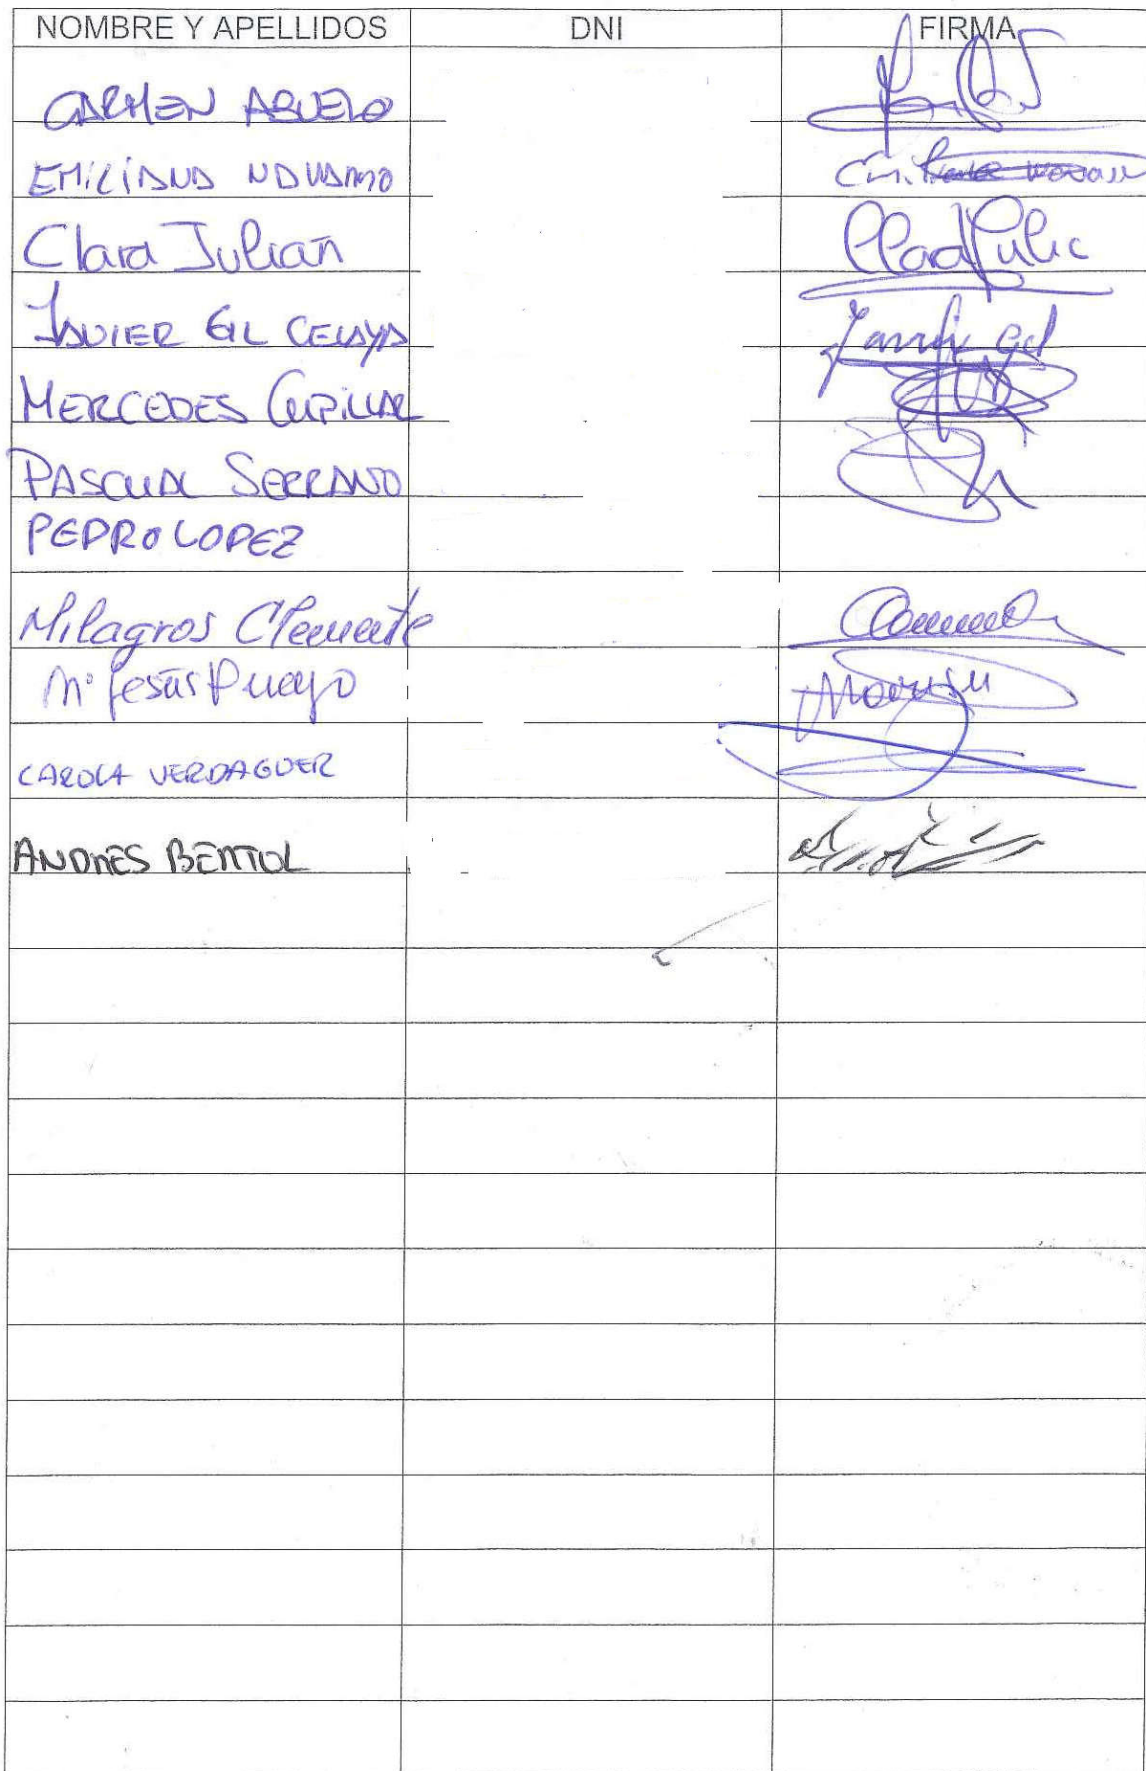 NOMBRE Y APELLIDOS DNI FIRMA
CARMEN ABUELO
EMILIANA NAVARRO
Clara Julián Clara Julia
JAVIER GIL CELAYA Javier Gil
MERCEDES CUPILLAR
PASCUAL SERRANO
PEDRO LOPEZ
Milagros Clemente
Mª Jesús Pueyo
CAROLA VERDAGUER
ANDRES BERTOL